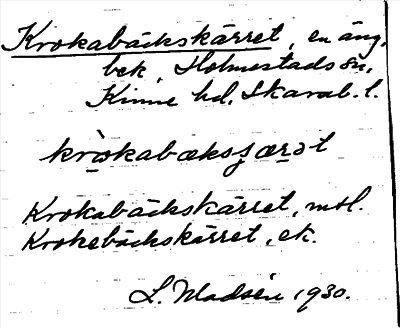 Krokabäckskärret, en äng,
bek, Holmestads sn,
Kinne hd, Skarab. l.
Krokabäckskärret, mtl.
Krokebäckskärret, ek.
L. Modsén 1930.